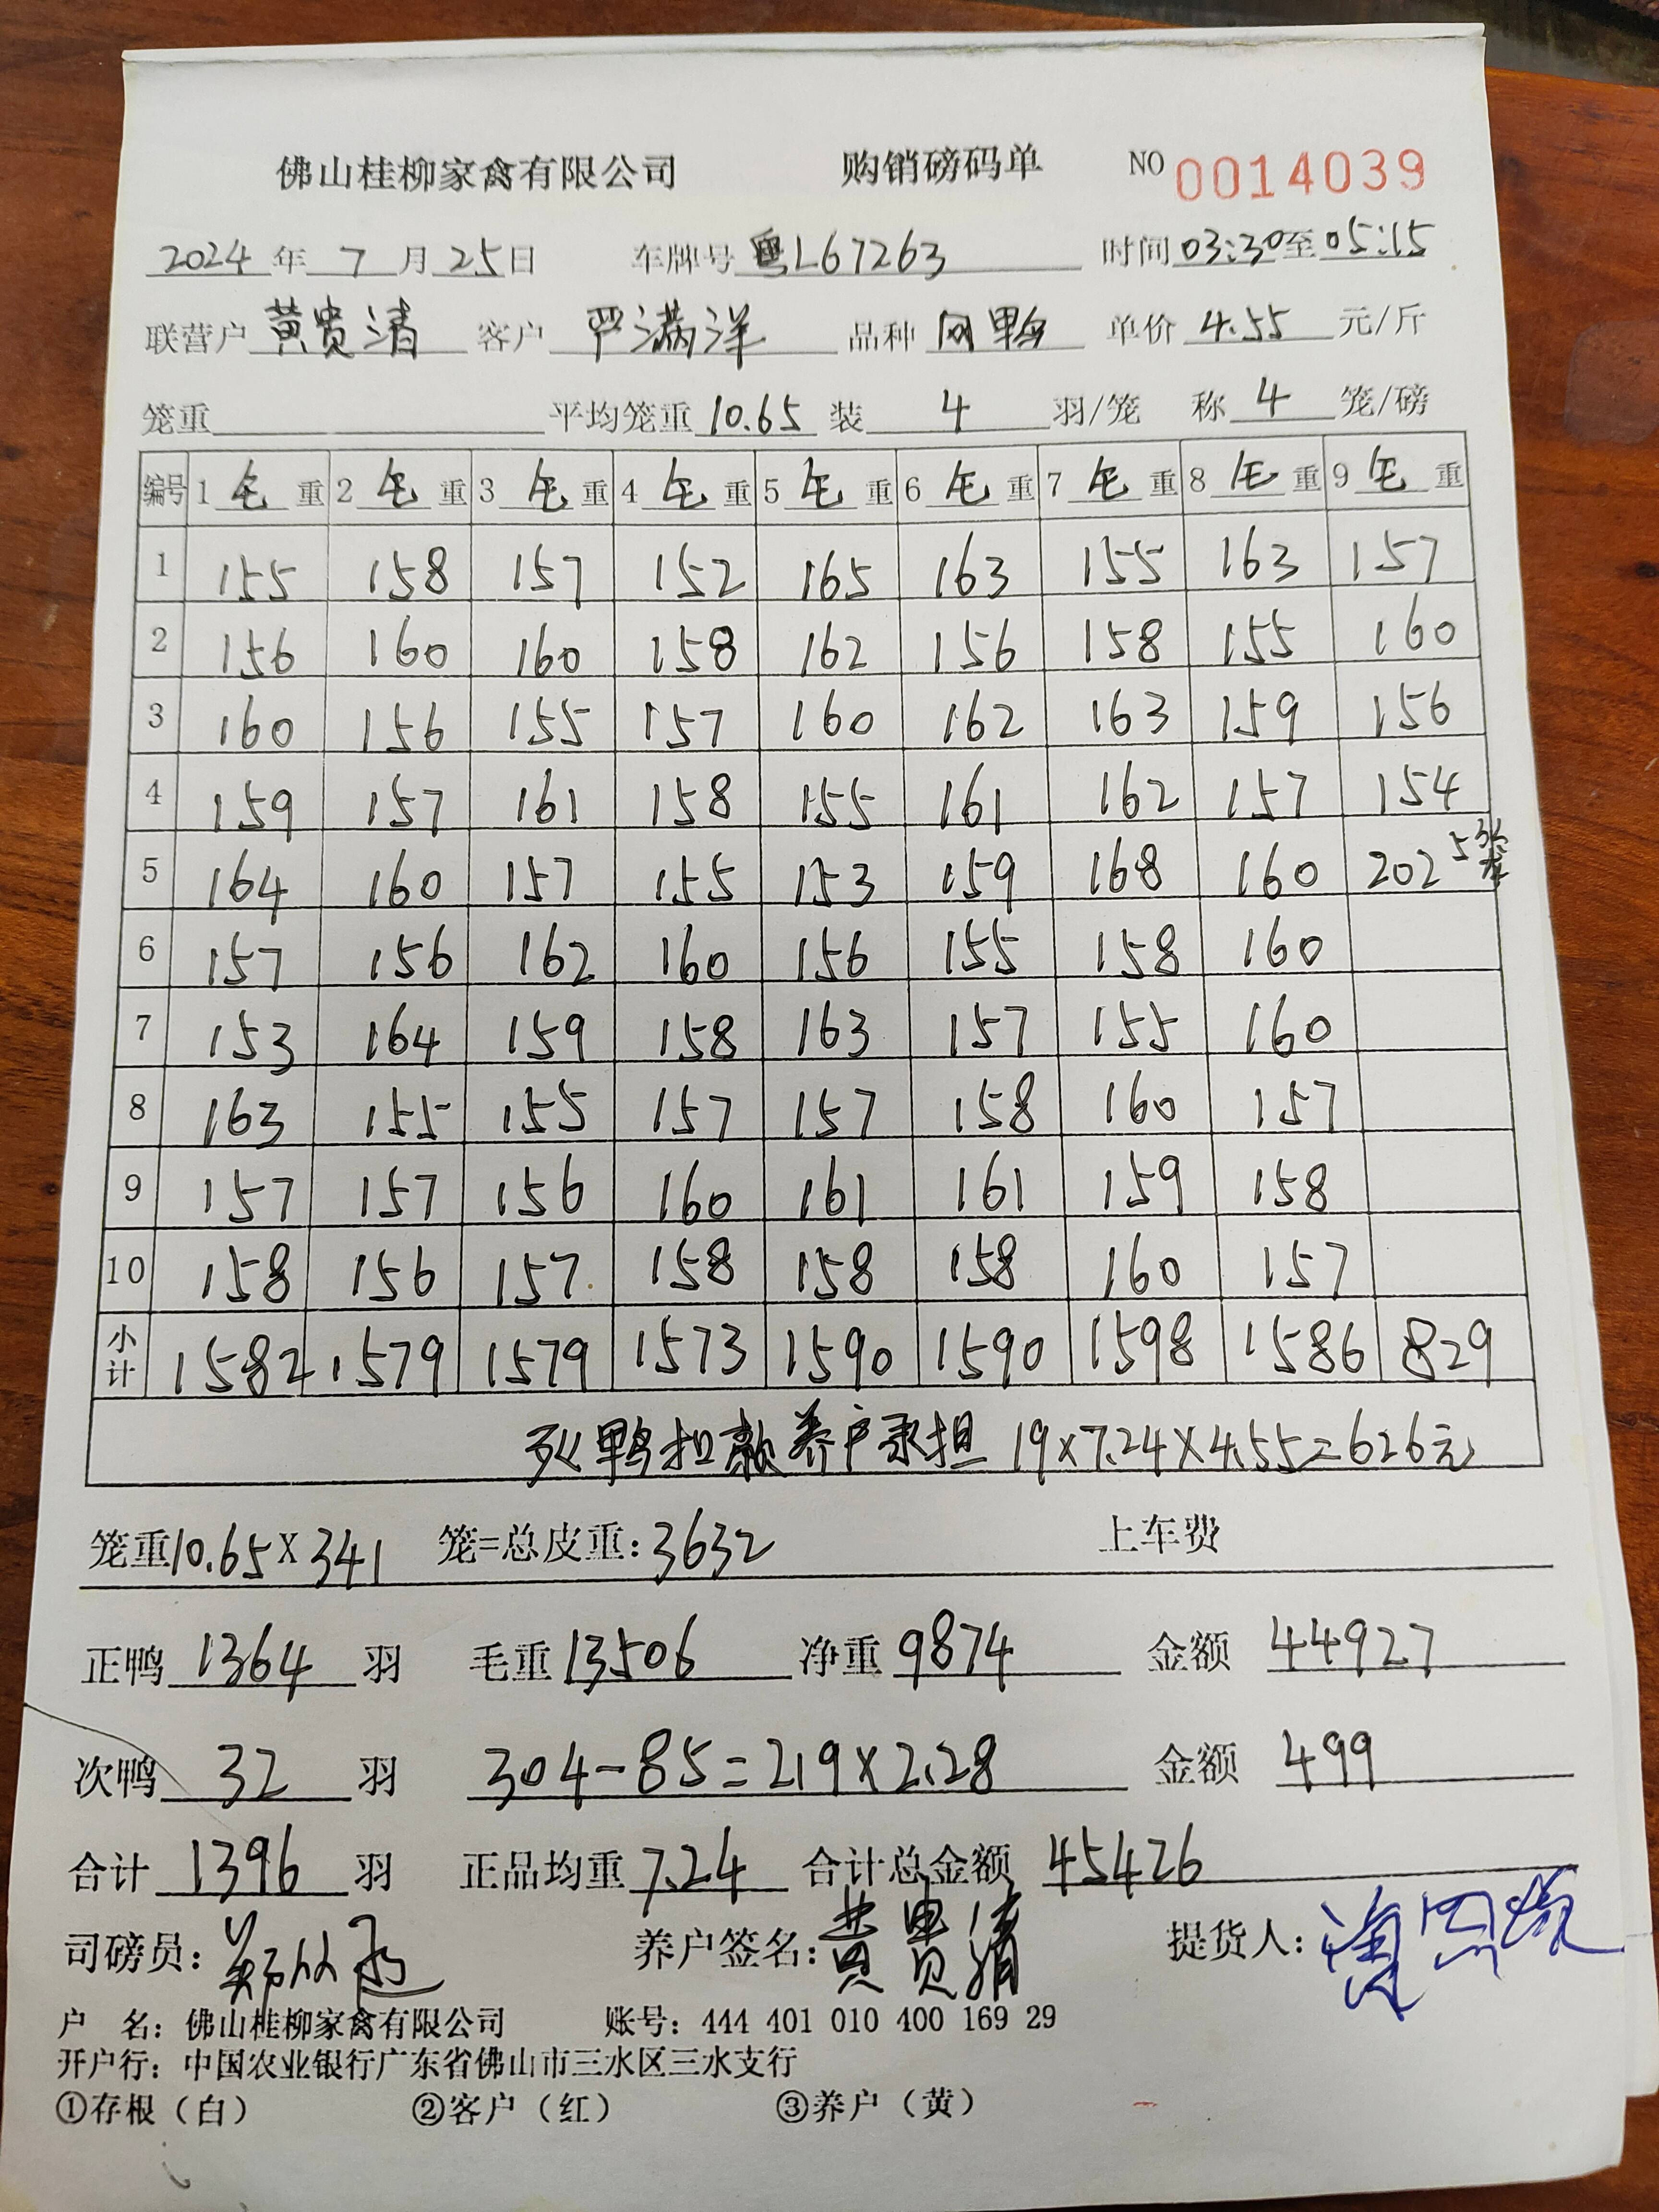 佛山桂柳家禽有限公司 购销磅码单 NO 0014039
2024年 7月25日 车牌号 粤L67263 时间03:30至05:15
联营户 黄贵清 客户 严满洋 品种 网鸭 单价 4.55 元/斤
笼重 平均笼重 10.65 装 4 羽/笼 称 4 笼/磅
编号 1 毛 重 2 毛 重 3 毛 重 4 毛 重 5 毛 重 6 毛 重 7 毛 重 8 毛 重 9 毛 重
1 155 158 157 152 165 163 155 163 157
2 156 160 160 158 162 156 158 155 160
3 160 156 155 157 160 162 163 159 156
4 159 157 161 158 155 161 162 157 154
5 164 160 157 155 153 159 168 160 202 5笼
6 157 156 162 160 156 155 158 160
7 153 164 159 158 163 157 155 160
8 163 155 155 157 157 158 160 157
9 157 157 156 160 161 161 159 158
10 158 156 157 158 158 158 160 157
小计 1582 1579 1579 1573 1590 1590 1598 1586 829
死鸭扣款养户承担 19×7.24×4.55=626元
笼重10.65X 341 笼=总皮重:3632 上车费
正鸭 1364 羽 毛重 13506 净重 9874 金额 44927
次鸭 32 羽 304-85=219×2.28 金额 499
合计 1396 羽 正品均重 7.24 合计总金额 45426
司磅员: 养户签名:黄贵清 提货人:
户 名: 佛山桂柳家禽有限公司 账号: 444 401 010 400 169 29
开户行: 中国农业银行广东省佛山市三水区三水支行
①存根（白） ②客户（红） ③养户（黄）